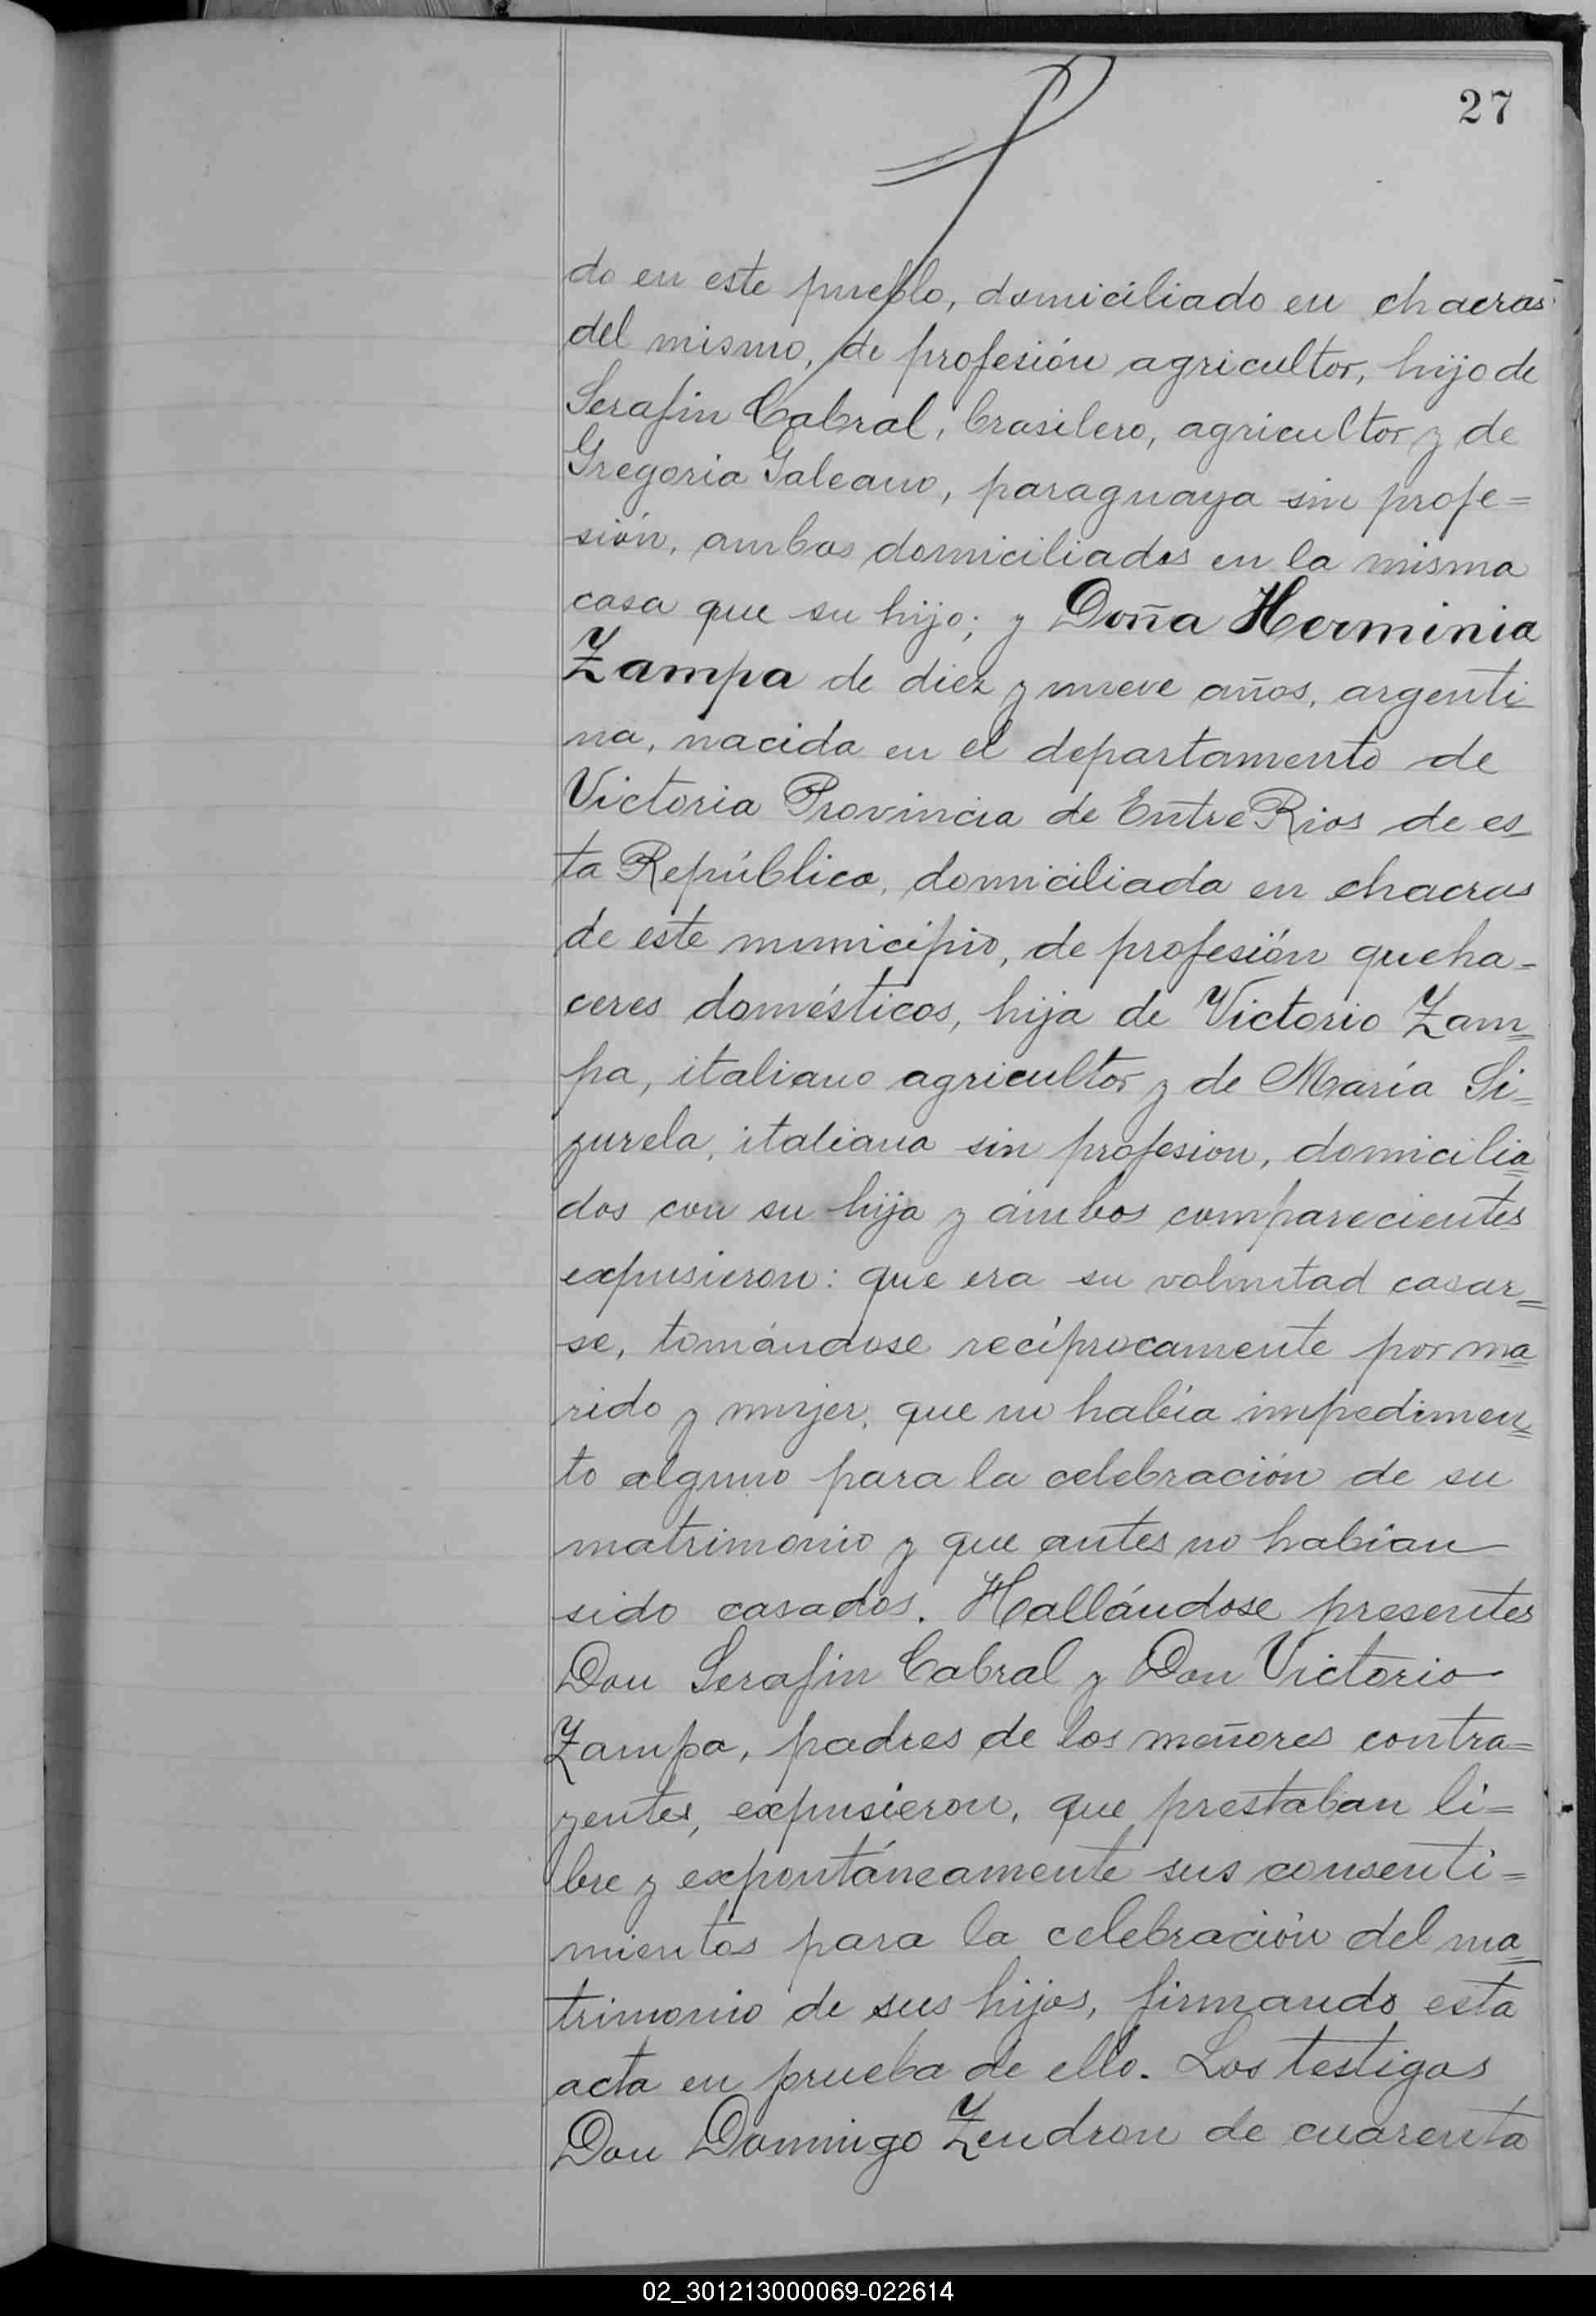 27
do en este pueblo, domiciliado en chacras
del mismo, de profesión agricultor, hijo de
Serafin Cabral, brasilero, agricultor y de
Gregoria Galeano, paraguaya sin profe=
sión, ambos domiciliados en la misma
casa que su hijo; y Doña Herminia
Zampa de diez y nueve años, argenti_
na, nacida en el departamento de
Victoria Provincia de Entre Rios de es_
ta República, domiciliada en chacras
de este municipio, de profesión queha-
ceres domésticos, hija de Victorio Zam=
pa, italiano agricultor y de María Si=
zurela, italiana sin profesion, domicilia=
dos con su hija y ámbos comparecientes
expusieron: que era su voluntad casar=
se, tomándose recíprocamente por ma=
rido y mujer, que no había impedimen=
to alguno para la celebración de su
matrimonio y que antes no habían
sido casados. Hallándose presentes
Don Serafin Cabral y Don Victorio
Zampa, padres de los meñores contra=
yentes, expusieron, que prestaban li=
bre y expontáneamente sus consenti=
mientos para la celebración del ma_
trimonio de sus hijos, firmando esta
acta en prueba de ello. Los testigos
Don Domingo Zendron de cuarenta
02_301213000069-022614